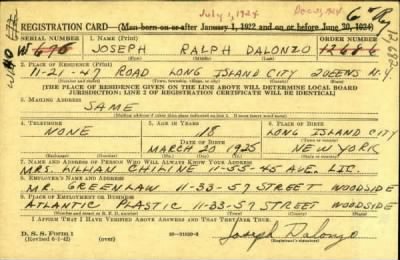 July 1, 1924 Dec. 31, 1924
REGISTRATION CARD—(Men born on or after January 1, 1922 and on or before June 30, 1924)
SERIAL NUMBER 1. NAME (Print)
W 676 JOSEPH RALPH DALONZO 12686
12,692
(First) (Middle) (Last)
2. PLACE OF RESIDENCE (Print)
11-21-47 ROAD LONG ISLAND CITY QUEENS N.Y.
(Number and street) (Town, township, village, or city) (County) (State)
[THE PLACE OF RESIDENCE GIVEN ON THE LINE ABOVE WILL DETERMINE LOCAL BOARD
JURISDICTION; LINE 2 OF REGISTRATION CERTIFICATE WILL BE IDENTICAL]
3. MAILING ADDRESS
SAME
(Mailing address if other than place indicated on line 2. If same insert word same)
4. TELEPHONE 5. AGE IN YEARS 6. PLACE OF BIRTH
NONE 18 LONG ISLAND CITY
DATE OF BIRTH (Town or county)
MARCH 20 1925 NEW YORK
(Exchange) (Number) (Mo.) (Day) (Yr.) (State or country)
7. NAME AND ADDRESS OF PERSON WHO WILL ALWAYS KNOW YOUR ADDRESS
MRS. LILLIAN CHILINE 11-55-45 AVE. LIC.
8. EMPLOYER'S NAME AND ADDRESS
MR. GREENLAW 11-33-57 STREET WOODSIDE
9. PLACE OF EMPLOYMENT OR BUSINESS
ATLANTIC PLASTIC 11-33-57 STREET WOODSIDE
(Number and street or R. F. D. number) (Town) (County) (State)
I AFFIRM THAT I HAVE VERIFIED ABOVE ANSWERS AND THAT THEY ARE TRUE.
D. S. S. Form 1
(Revised 6-1-42) (over) Joseph Dalonzo
(Registrant's signature)